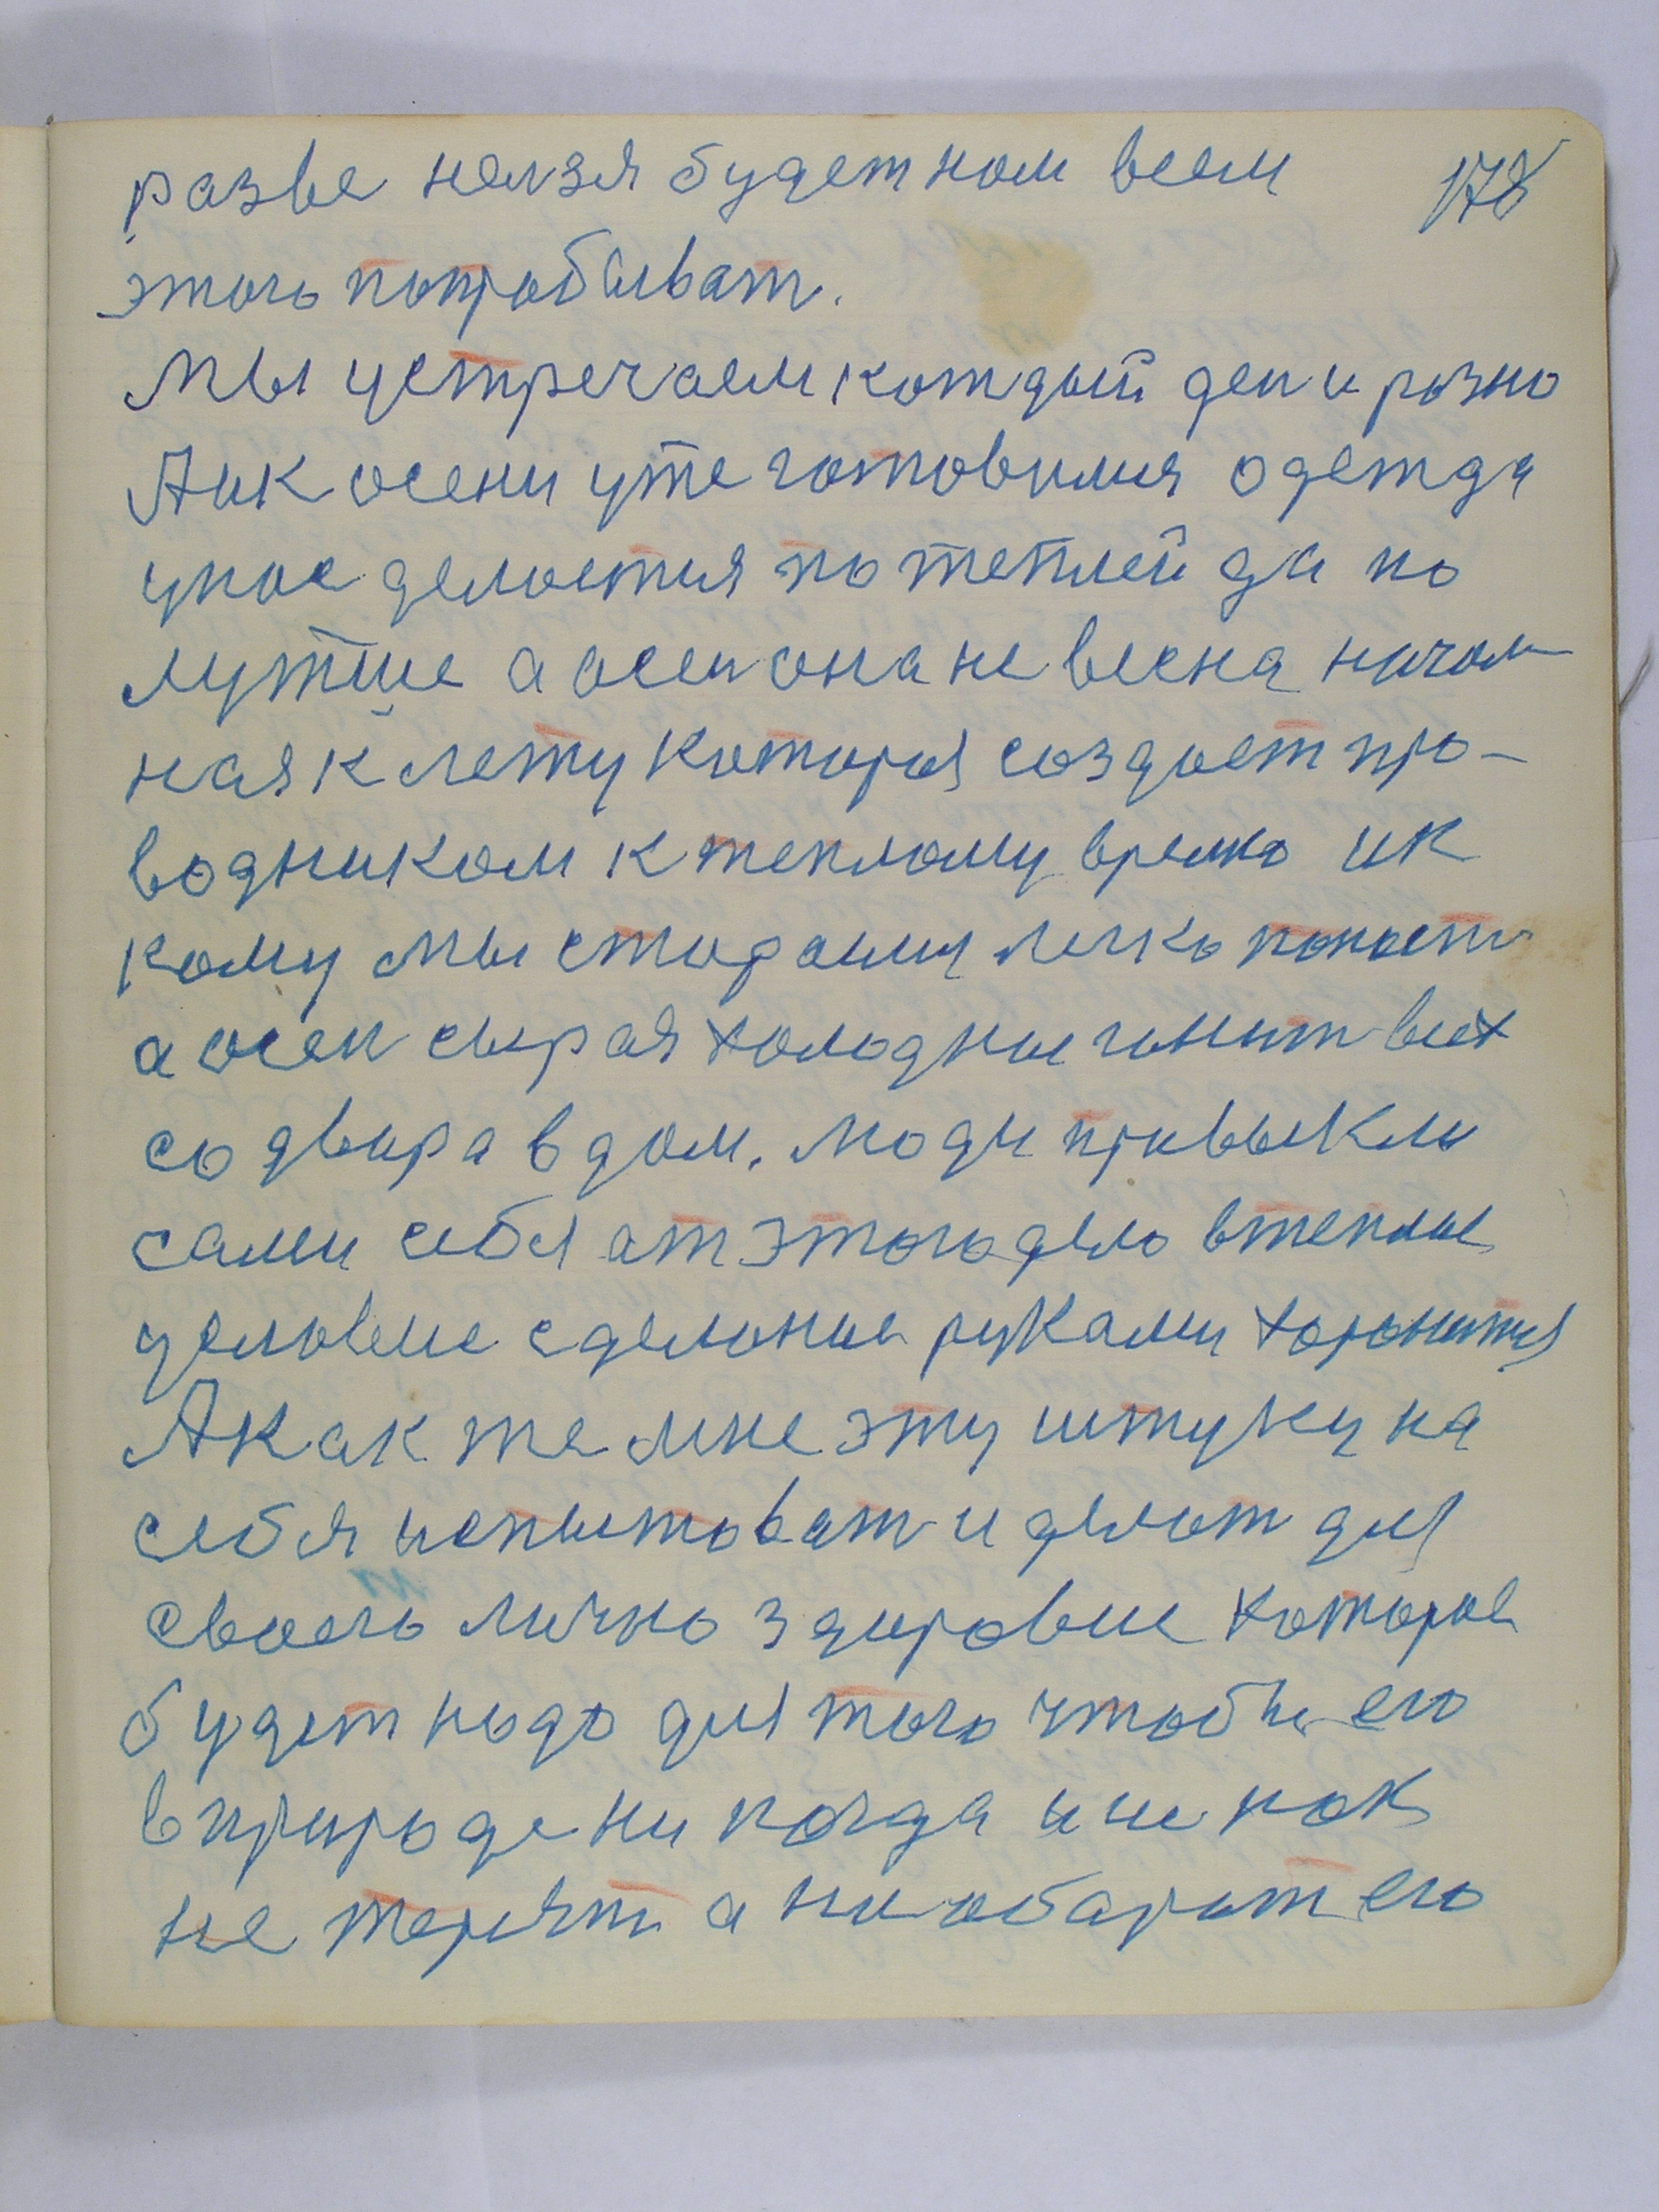 разве нелзя будет ном всем 178
этого попробыват.
Мы устречаем кождый ден и розно
А ик осени уже готовимся одежда
унас делоется по теплей да по
лутше а осен она не весна начал
ная к лету которыя создоет про-
водником к теплому время ик
кому мы стораимся легко попасть
а осен сырая холодныя гонит всех
со двыра в дом. Люди привыкли
сами себя от этого дело в теплые
условеие сделоные руками хоронится
А как же мне эту штуку на
себя испытоват и делот для
своего лично здоровие которое
будет надо для того чтобы его
в природе ни когда и не как
не терят а на оборот его